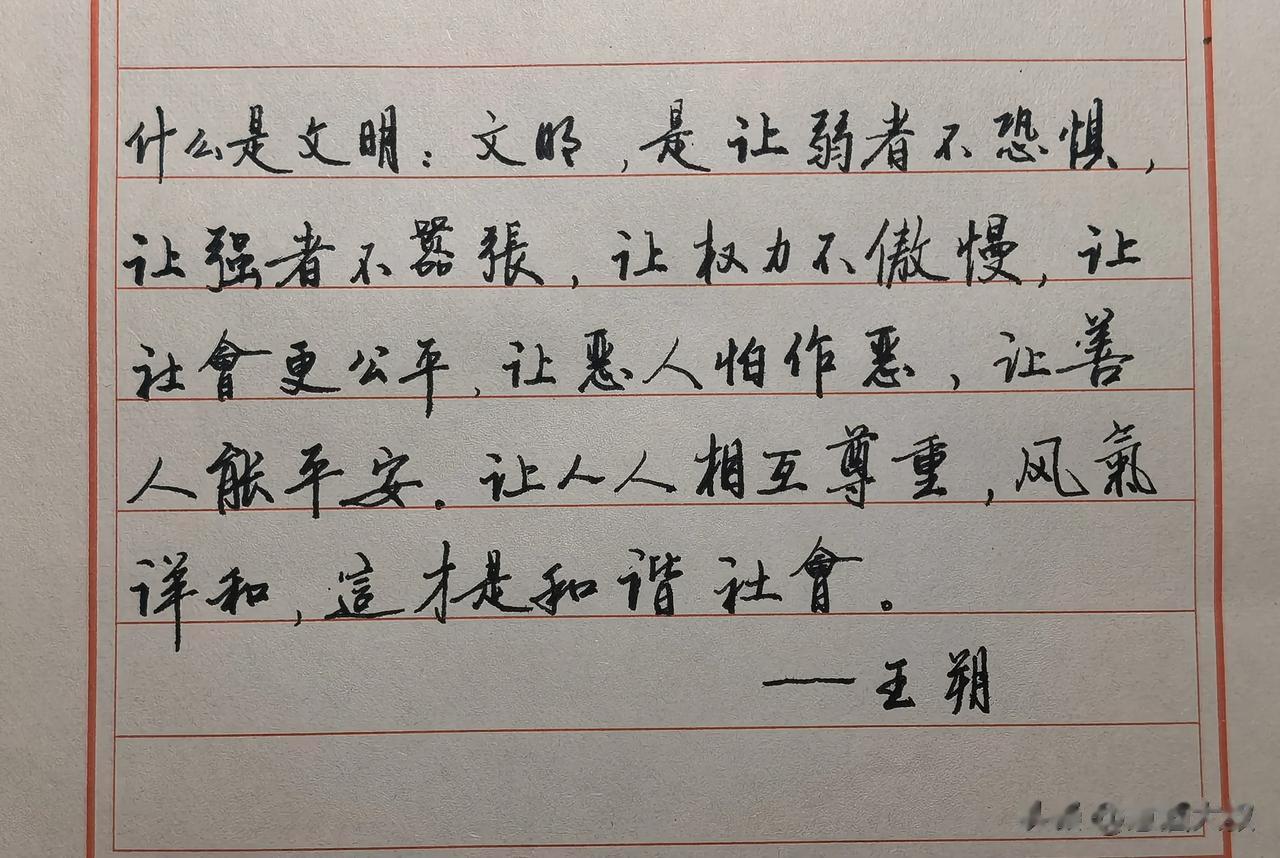 什么是文明：文明，是让弱者不恐惧，
让强者不嚣張，让权力不傲慢，让
社會更公平，让恶人怕作恶，让善
人能平安。让人人相互尊重，风氣
详和，這才是和谐社會。
——王朔